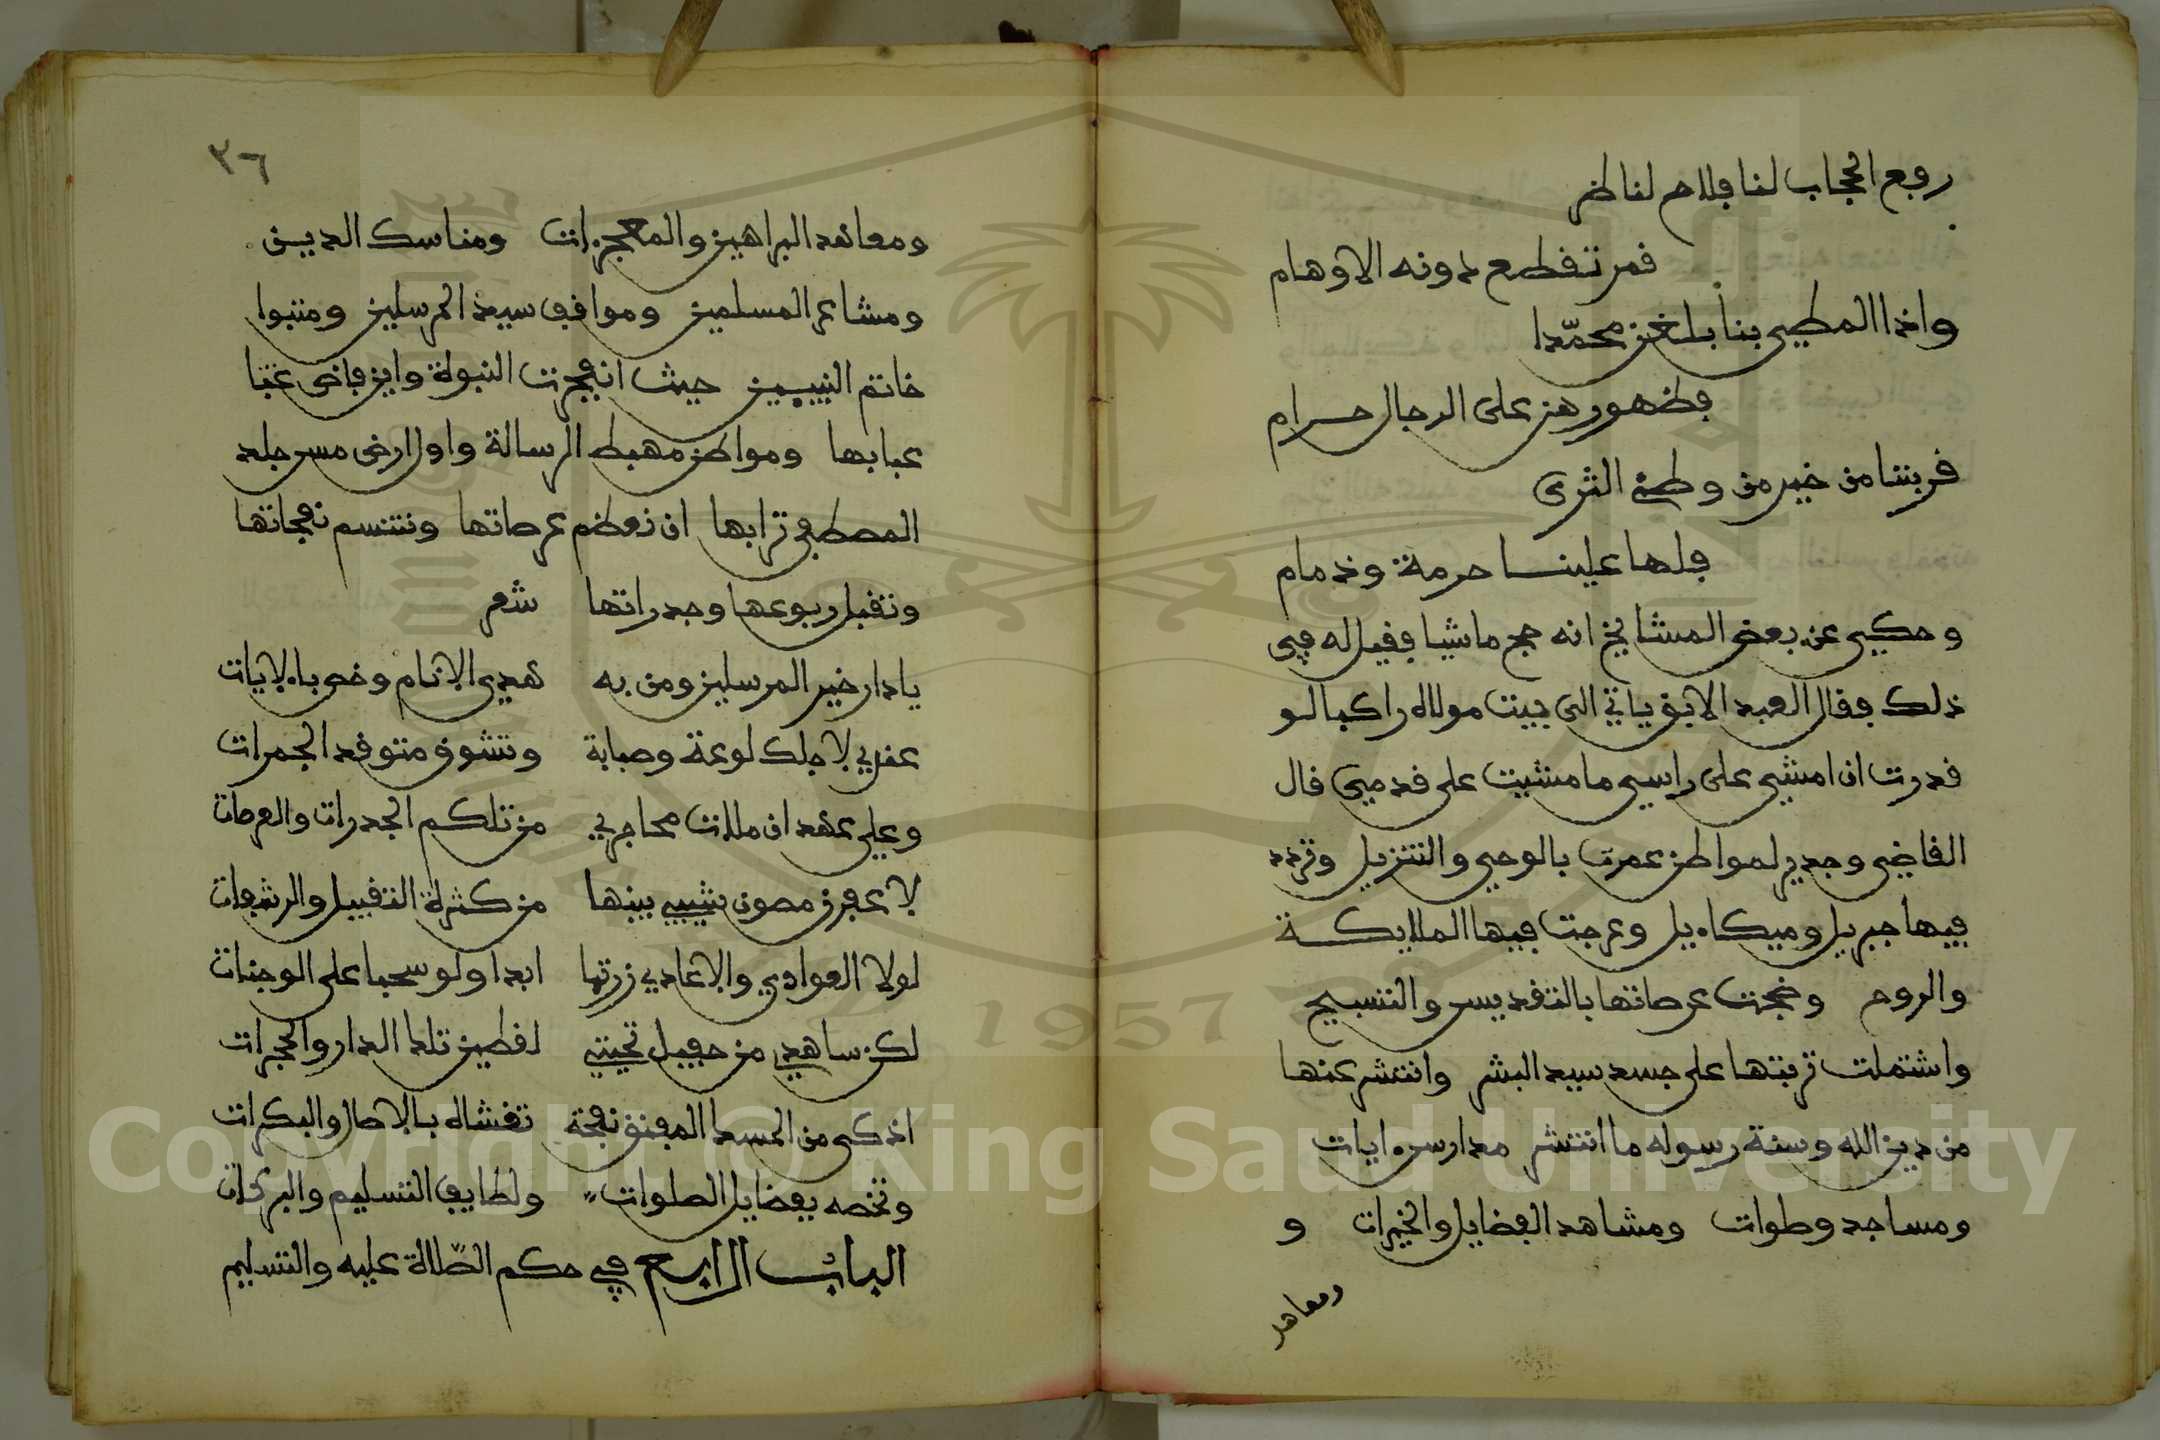 رفع الحجاب لنا فلاح لناظر
قمر تقطع دونه الاوهام
واذا المطي بنا بلغن محمّدا
فظهورهن على الرجال حرام
قربننا من خير من وطئ الثرى
فلها علينا حرمة وذمام
وحكي عن بعض المشايخ انه حج ماشيا فقيل له في
ذلك فقال العبد الابق ياتي الى بيت مولاه راكبا لو
قدرت ان امشي على راسي ما مشيت على قدمي قال
القاضي وجدير لمواطن عمرت بالوحي والتنزيل وتردد
فيها جبريل وميكاءيل وعرجت فيها الملايكة
والروح وضجت عرصاتها بالتقديس والتسبيح
واشتملت تربتها على جسد سيد البشر وانتشر عنها
من دين الله وسنة رسوله ما انتشر مدارس ءايات
ومساجد وصلوات ومشاهد الفضايل والخيرات و
ومعاهد
٣٦
ومعاهد البراهين والمعجزات ومناسك الدين
ومشاعر المسلمين ومواقف سيد المرسلين ومتبوا
خاتم النبيين حيث انفجرت النبوة واين فاض
عبابها ومواطن مهبط الرسالة واول ارض مس جلد
المصطفى ترابها ان تعظم عرصاتها وتتنسم نفحاتها
وتقبل ربوعها وجدراتها شعر
يا دار خير المرسلين ومن به هدي الانام وخص بالايات
عندي لاجلك لوعة وصبابة وتشوق متوقد الجمرات
وعلي عهد ان ملات محاجري من تلكم الجدرات والعرصات
لاعفرن مصون شيبي بينها من كثرة التقبيل والرشفات
لولا العوادي والاعادي زرتها ابدا ولو سحبا على الوجنات
لكن ساهدي من حفيل تحيتي لقطين تلك الدار والحجرات
اذكى من المسك المفتق نفحة تغشاه بالاصال والبكرات
وتخصه بفضايل الصلوات ولطايف التسليم والبركات
الباب الرابع في حكم الصّلاة عليه والتسليم
Copyright © King Saud University
1957